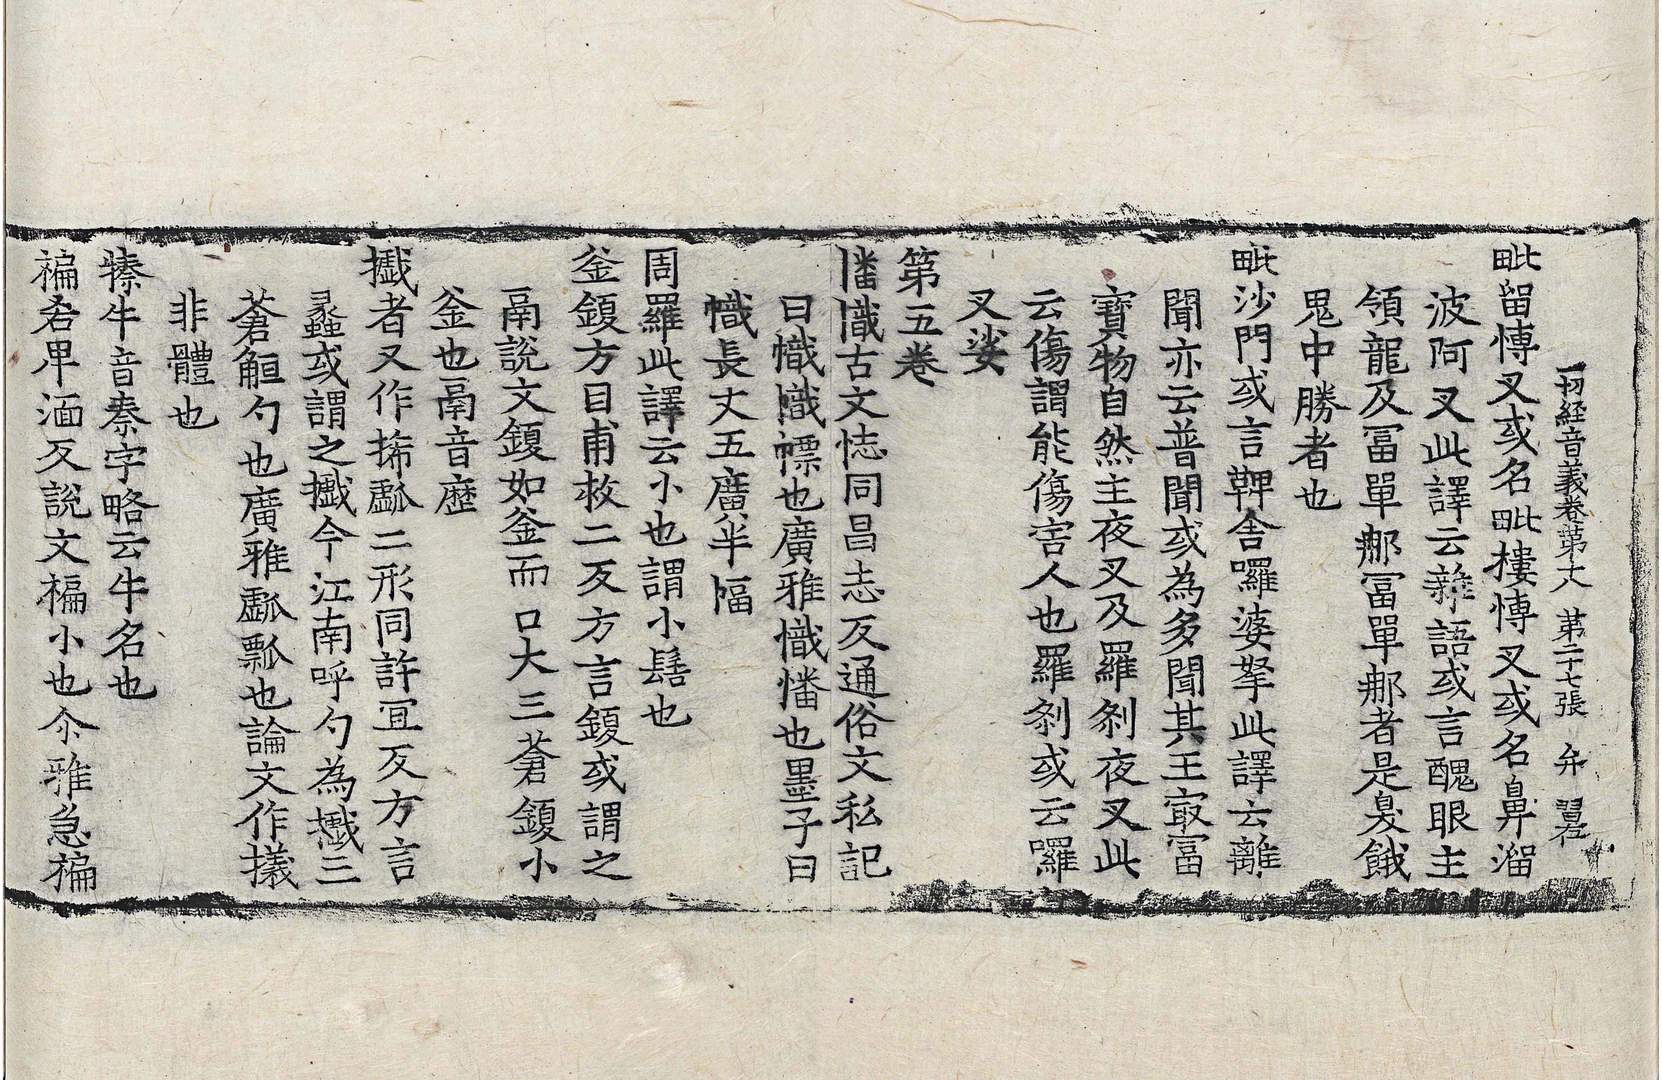 一切経音義卷第十八 第二十七張 弁 
毗留愽叉或名毗樓愽叉或名鼻溜
波阿叉此譯云雜語或言醜眼主
領龍及冨單那冨單那者是臰餓
鬼中勝者也
毗沙門或言鞞舍囉婆拏此譯云離
聞亦云普聞或為多聞其王㝡冨
寶物自然主夜叉及羅剎夜叉此
云傷謂能傷害人也羅剎或云囉
叉娑
第五卷
憣幟古文恀同昌志反通俗文私記
曰幟幟幖也廣雅幟憣也墨子曰
幟長丈五廣半幅
周羅此譯云小也謂小髻也
釜鍑方目甫救二反方言鍑或謂之
鬲說文鍑如釜而口大三蒼鍑小
釜也鬲音歷
㰕者又作㧊㪺二形同許冝反方言
蠡或謂之㰕今江南呼勺為㰕三
蒼觛勺也廣雅㼖瓢也論文作㩘
非體也
㮈牛音秦字略云牛名也
褊吝卑湎反說文褊小也尒雅急褊